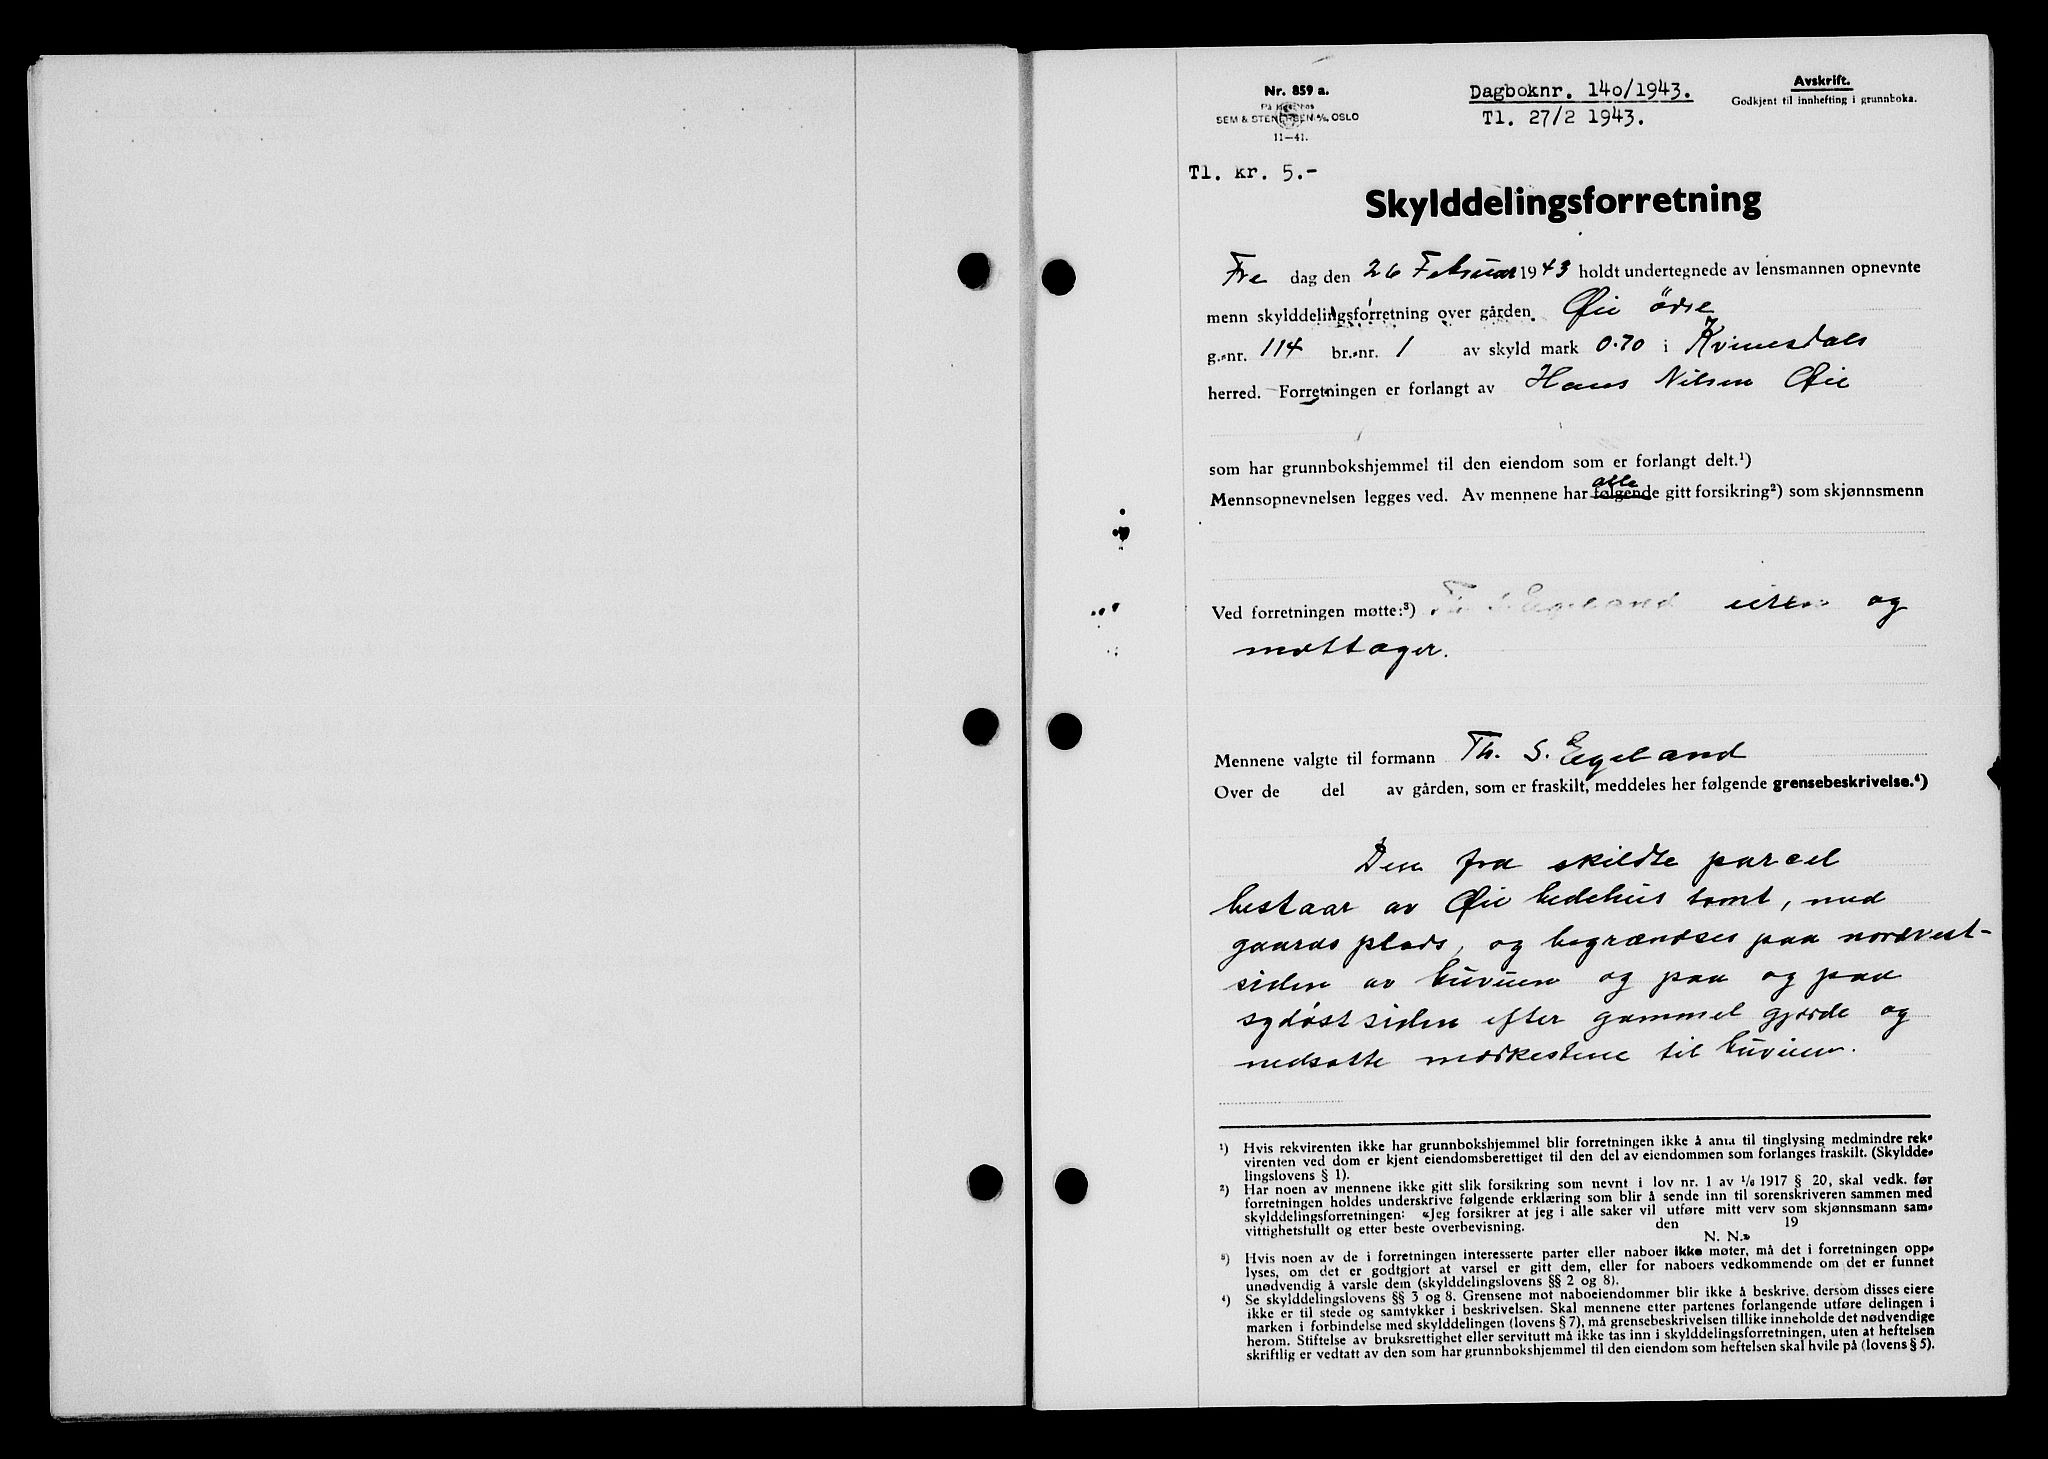 Nr. 859 a.
SEM & STENERSEN A/S, OSLO
11—41.
Dagboknr. 140/1943.
Tl. 27/2 1943.
Avskrift.
Godkjent til innhefting i grunnboka.
Tl. kr. 5.-
Skylddelingsforretning
Fre dag den 26 Februar 1943 holdt undertegnede av lensmannen opnevnte
menn skylddelingsforretning over gården Øie ödre
g.-nr. 114 br.-nr. 1 av skyld mark 0.70 i Kvinesdals
herred. Forretningen er forlangt av Hans Nilsen Øie
som har grunnbokshjemmel til den eiendom som er forlangt delt.¹)
alle
Mennsopnevnelsen legges ved. Av mennene har følgende gitt forsikring²) som skjønnsmenn
Ved forretningen møtte:³) Th. S. Egeland eiren og
mottager.
Mennene valgte til formann Th. S. Egeland
Over de del av gården, som er fraskilt, meddeles her følgende grensebeskrivelse.⁴)
Den fra skildte parcel
bestaar av Øie bedehus tomt, med
gaards plads, og begrændses paa nordvest-
siden av buvuen og paa og paa
sydöst siden efter gammel gjærde og
nedsatte merkestene til buvuen.
¹) Hvis rekvirenten ikke har grunnbokshjemmel blir forretningen ikke å anta til tinglysing medmindre rek-
virenten ved dom er kjent eiendomsberettiget til den del av eiendommen som forlanges fraskilt. (Skyldde-
lingslovens § 1).
²) Har noen av mennene ikke gitt slik forsikring som nevnt i lov nr. 1 av 1/6 1917 § 20, skal vedk. før
forretningen holdes underskrive følgende erklæring som blir å sende inn til sorenskriveren sammen med
skylddelingsforretningen: «Jeg forsikrer at jeg i alle saker vil utføre mitt verv som skjønnsmann sam-
vittighetsfullt og etter beste overbevisning. den 19
N. N.»
³) Hvis noen av de i forretningen interesserte parter eller naboer ikke møter, må det i forretningen opp-
lyses, om det er godtgjort at varsel er gitt dem, eller for naboers vedkommende om det er funnet
unødvendig å varsle dem (skylddelingslovens §§ 2 og 8).
⁴) Se skylddelingslovens §§ 3 og 8. Grensene mot naboeiendommer blir ikke å beskrive, dersom disses eiere
ikke er til stede og samtykker i beskrivelsen. Skal mennene etter partenes forlangende utføre delingen i
marken i forbindelse med skylddelingen (lovens § 7), må grensebeskrivelsen tillike inneholde det nødvendige
herom. Stiftelse av bruksrettighet eller servitutt må ikke tas inn i skylddelingsforretningen, uten at heftelsen
skriftlig er vedtatt av den som har grunnbokshjemmel til den eiendom som heftelsen skal hvile på (lovens § 5).